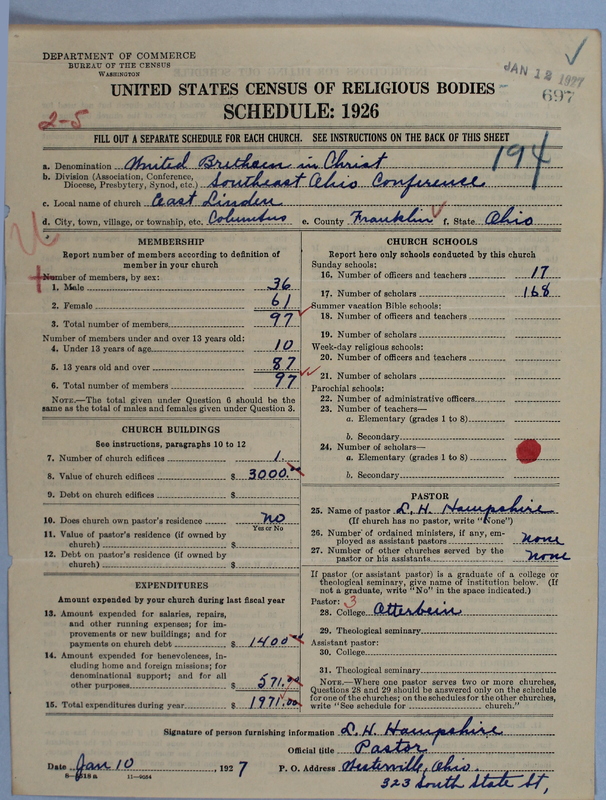 DEPARTMENT OF COMMERCE
BUREAU OF THE CENSUS
WASHINGTON
JAN 12 1927
697
UNITED STATES CENSUS OF RELIGIOUS BODIES
SCHEDULE: 1926
2-5
FILL OUT A SEPARATE SCHEDULE FOR EACH CHURCH. SEE INSTRUCTIONS ON THE BACK OF THIS SHEET
194
a. Denomination United Brethren in Christ
b. Division (Association, Conference, Diocese, Presbytery, Synod, etc.) Southeast Ohio Conference
c. Local name of church East Linden
d. City, town, village, or township, etc. Columbus e. County Franklin f. State Ohio
MEMBERSHIP
Report number of members according to definition of
member in your church
Number of members, by sex:
1. Male 36
2. Female 61
3. Total number of members 97
Number of members under and over 13 years old:
4. Under 13 years of age 10
5. 13 years old and over 87
6. Total number of members 97
NOTE.—The total given under Question 6 should be the
same as the total of males and females given under Question 3.
CHURCH BUILDINGS
See instructions, paragraphs 10 to 12
7. Number of church edifices 1.
8. Value of church edifices $ 3000.00
9. Debt on church edifices $
10. Does church own pastor's residence No
Yes or No
11. Value of pastor's residence (if owned by
church) $
12. Debt on pastor's residence (if owned by
church) $
EXPENDITURES
Amount expended by your church during last fiscal year
13. Amount expended for salaries, repairs,
and other running expenses; for im-
provements or new buildings; and for
payments on church debt $ 1400.00
14. Amount expended for benevolences, in-
cluding home and foreign missions; for
denominational support; and for all
other purposes $ 571.00
15. Total expenditures during year $ 1971.00
CHURCH SCHOOLS
Report here only schools conducted by this church
Sunday schools:
16. Number of officers and teachers 17
17. Number of scholars 168
Summer vacation Bible schools:
18. Number of officers and teachers
19. Number of scholars
Week-day religious schools:
20. Number of officers and teachers
21. Number of scholars
Parochial schools:
22. Number of administrative officers
23. Number of teachers—
a. Elementary (grades 1 to 8)
b. Secondary
24. Number of scholars—
a. Elementary (grades 1 to 8)
b. Secondary
PASTOR
25. Name of pastor L. H. Hampshire
(If church has no pastor, write "None")
26. Number of ordained ministers, if any, em-
ployed as assistant pastors none
27. Number of other churches served by the
pastor or his assistants none
If pastor (or assistant pastor) is a graduate of a college or
theological seminary, give name of institution below. (If
not a graduate, write "No" in the space indicated.)
Pastor: 3
28. College Otterbein
29. Theological seminary
Assistant pastor:
30. College
31. Theological seminary
NOTE.—Where one pastor serves two or more churches,
Questions 28 and 29 should be answered only on the schedule
for one of the churches; on the schedules for the other churches,
write "See schedule for church."
Signature of person furnishing information L. H. Hampshire
Official title Pastor
Date Jan 10, 1927 P. O. Address Westerville, Ohio.
323 South State St,
8—6518a 11—9084